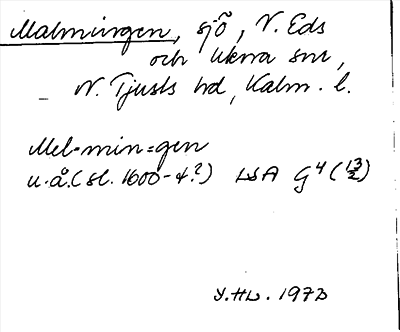 Malmingen, sjö, V. Eds
och Ukna snr,
N. Tjusts hd, Kalm. l.
Mel-min=gen
u.å.(sl. 1600-t.?) LSA G4(13/2)
Y.HL. 1973